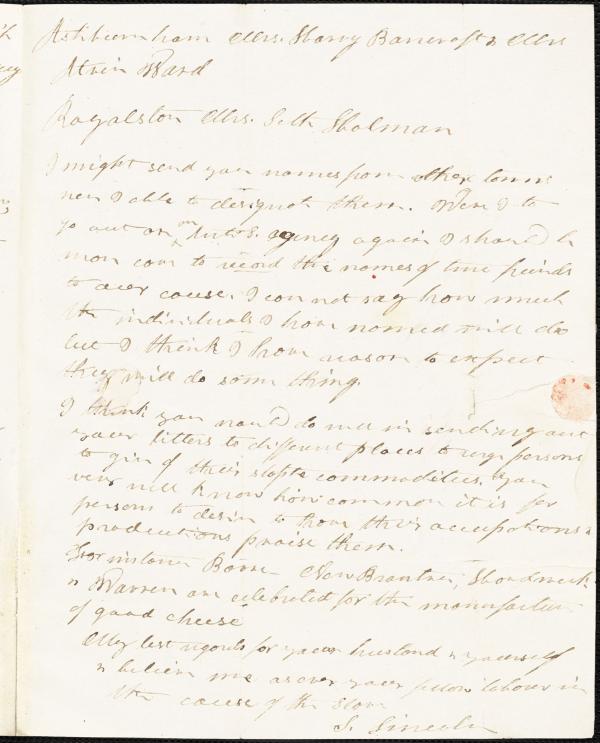 Ashburnham Mrs. Harvy Bancroft & Mrs
Alvin Ward
Royalston Mrs. Seth Holman
I might send you names from other towns
were I able to designate them. Were I to
go out on an Anti S. agency again I should be
more care to record the names of true friends
to our cause. I can not say how much
the individuals I have named will do
but I think I have reason to expect
they will do some thing.
I think you would do well in sending out
your letters to different places to urge persons
to give of their staple commodities. You
very well know how common it is for
persons to desire to have their occupations &
productions praise them.
For instance Barre New Braintree, Hardwick
& Warren are celebrated for the manufacture
of good cheese
My best regards for your husband & yourself
& believe me as ever your fellow labour in
the cause of the slave
S. Lincoln